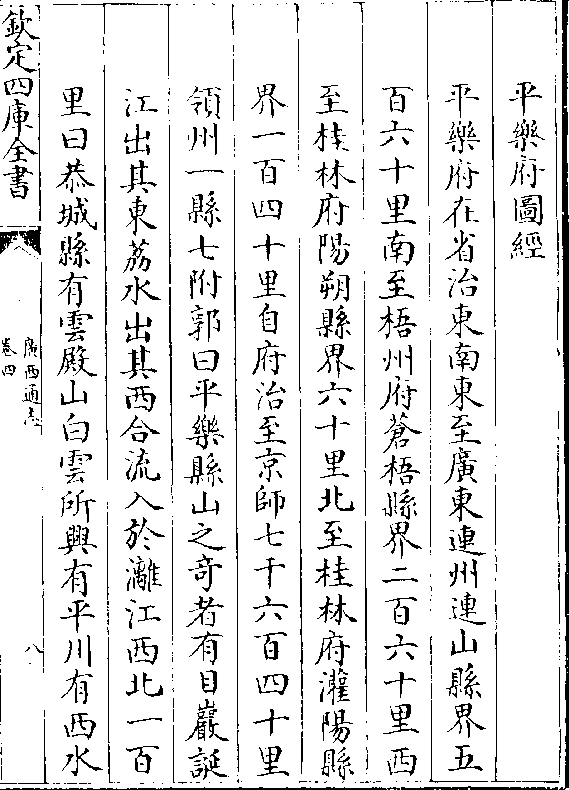 平樂府圖經
平樂府在省治東南東至廣東連州連山縣界五
百六十里南至梧州府蒼梧縣界二百六十里西
至桂林府陽朔縣界六十里北至桂林府灌陽縣
界一百四十里自府治至京師七千六百四十里
領州一縣七附郭曰平樂縣山之奇者有目巖誕
江出其東荔水出其西合流入於灕江西北一百
里曰恭城縣有雲殿山白雲所興有平川有西水
欽定四庫全書
廣西通志
卷四
八